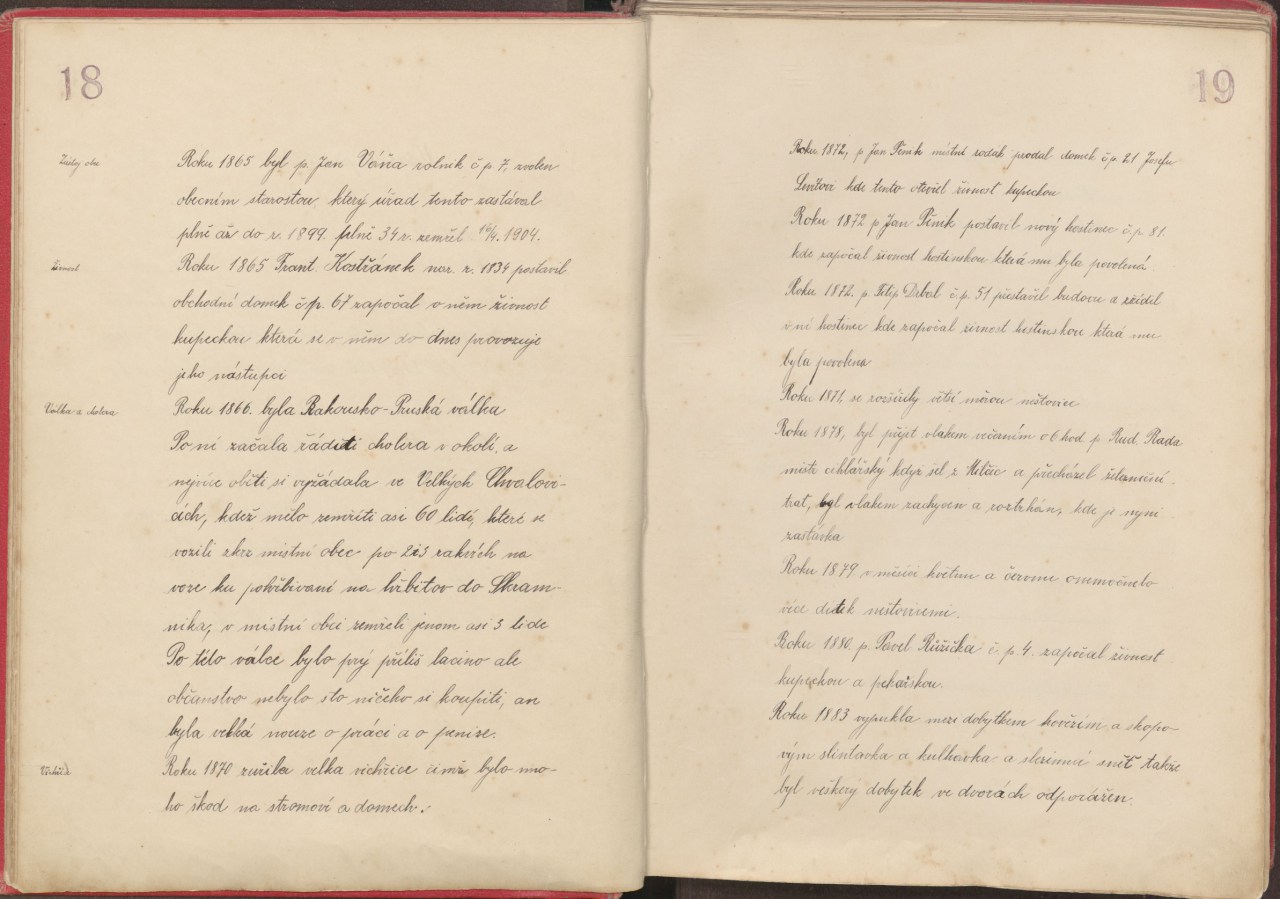 18
Roku 1865 byl p. Jan Váňa rolník č p. 7, zvolen
obecním starostou který úřad tento zastával
plně až do r. 1899. plně 34 r. zemřel 16/4. 1904.
Živnost
Roku 1865 Frant. Kostřánek nar. r. 1834 postavil
obchodní domek č p. 67 započal v něm živnost
kupeckou která se v něm do dnes provozuje
jeho nástupci
Válka a cholera
Roku 1866. byla Rakousko-Pruská válka
Po ní začala řáditi cholera v okolí, a
nejvíce obětí si vyžádala ve Velkých Chvalovi-
cích, kdež mělo zemříti asi 60 lidí, které se
vozili skrz místní obec po 2i3 rakvích na
voze ku pohřbívaní na hřbitov do Skram-
níka, v místní obci zemřeli jenom asi 3 lidé
Po této válce bylo prý příliš lacino ale
občanstvo nebylo sto ničeho si koupiti, an
byla velká nouze o práci a o peníze.
Roku 1870 zuřila velka vichřice čímž bylo mno-
ho škod na stromoví a domech.
19
Roku 1872, p Jan Pěnek místní rodák prodal domek č p. 21 Josefu
kde tento otevřel živnost kupeckou
Roku 1872 p Jan Pěnek postavil nový hostinec č. p. 81.
kde započal živnost hostinskou která mu byla povolená
Roku 1872. p Filip Drbal č. p. 51 přestavěl budovu a zřídil
v ní hostinec kde započal živnost hostinskou která mu
byla povolena
Roku 1871, se rozšířily větší měrou neštovice
Roku 1878, byl přejet vlakem večerním o 6 hod p Rud. Rada
mistr cihlářský když šel z Milčic a přecházel želamiční
trať, byl vlakem zachycen a roztrhán, kde je nyní
zastávka
Roku 1879 v měsíci květnu a červnu onemocnělo
více dítek neštovicemi.
Roku 1880. p. Pavel Růžička č. p. 4. započal živnost
kupeckou a pekařskou.
Roku 1883 vypukla mezi dobytkem hovězím a skopo-
vým slintavka a kulhavka a slezinná sněť takže
byl veškerý dobytek ve dvorách odporážen.